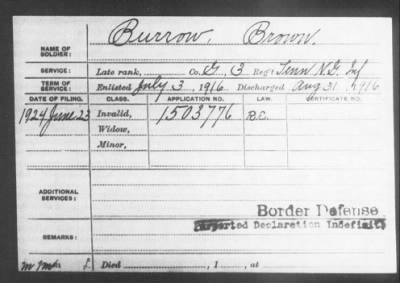 Burrow, Brown.
NAME OF SOLDIER:
SERVICE: Late rank, Co. G, 3 Reg't Tenn N.G. Inf
TERM OF SERVICE: Enlisted July 3, 1916. Discharged Aug 31, 1916
DATE OF FILING. CLASS. APPLICATION NO. LAW. CERTIFICATE NO.
1924 June 23 Invalid, 1503776 B.C.
Widow,
Minor,
ADDITIONAL SERVICES:
Border Defense
Declaration Indefinite
REMARKS:
Died , 1 , at